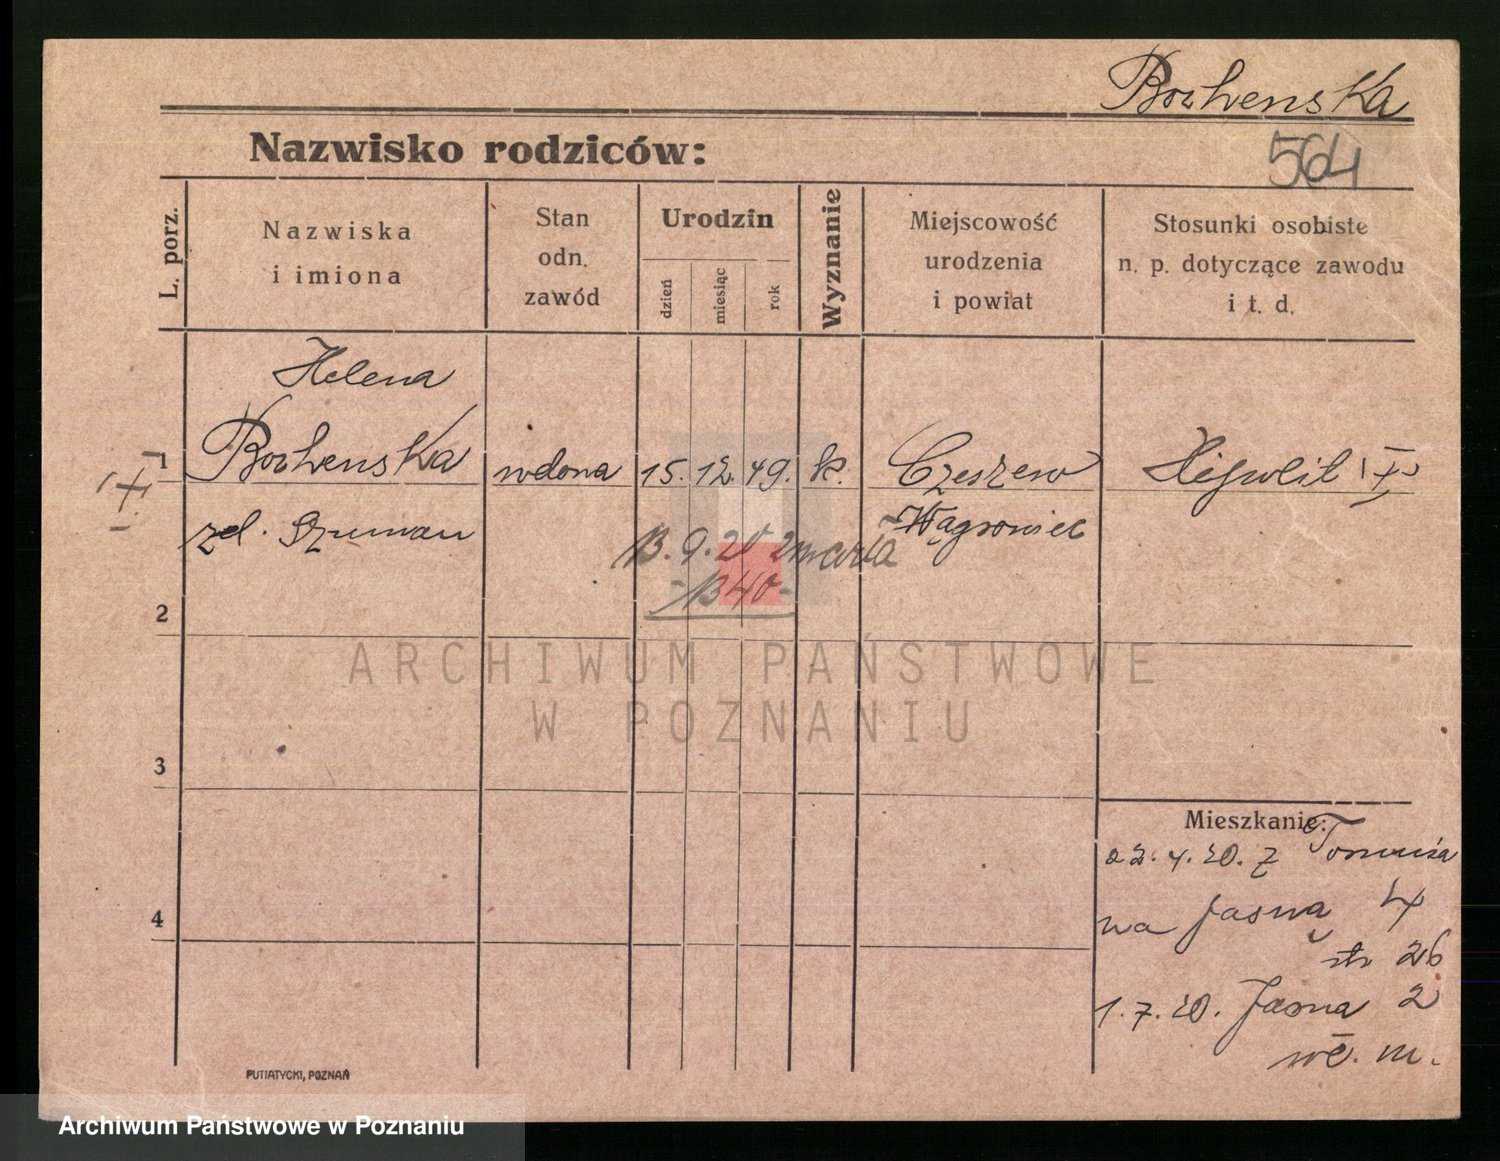 Bochenska
564
Nazwisko rodziców:
L. porz.
Nazwiska
i imiona
Stan
odn.
zawód
Urodzin
dzień
miesiąc
rok
Wyznanie
Miejscowość
urodzenia
i powiat
Stosunki osobiste
n. p. dotyczące zawodu
i t. d.
Helena
Bochenska wdowa 15. 12. 49. k. Czeszewo
Szuman Wągrowiec
13. 9. 20 zmarła
2
ARCHIWUM PAŃSTWOWE
W POZNANIU
3
Mieszkanie:
22. 4. 20. z Torunia
4
na Jasna 4
26
1. 7. 20. Jasna 2
PUTIATYCKI, POZNAŃ
Archiwum Państwowe w Poznaniu